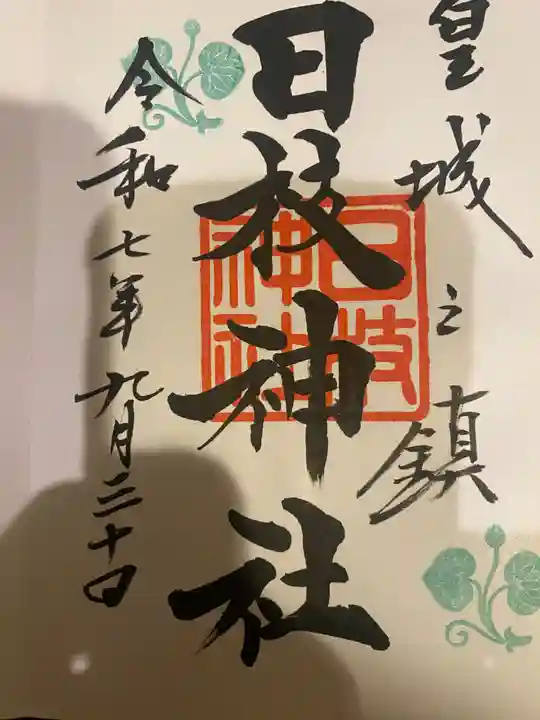 皇城之鎮
日枝神社
日枝
神社
令和七年九月二十日